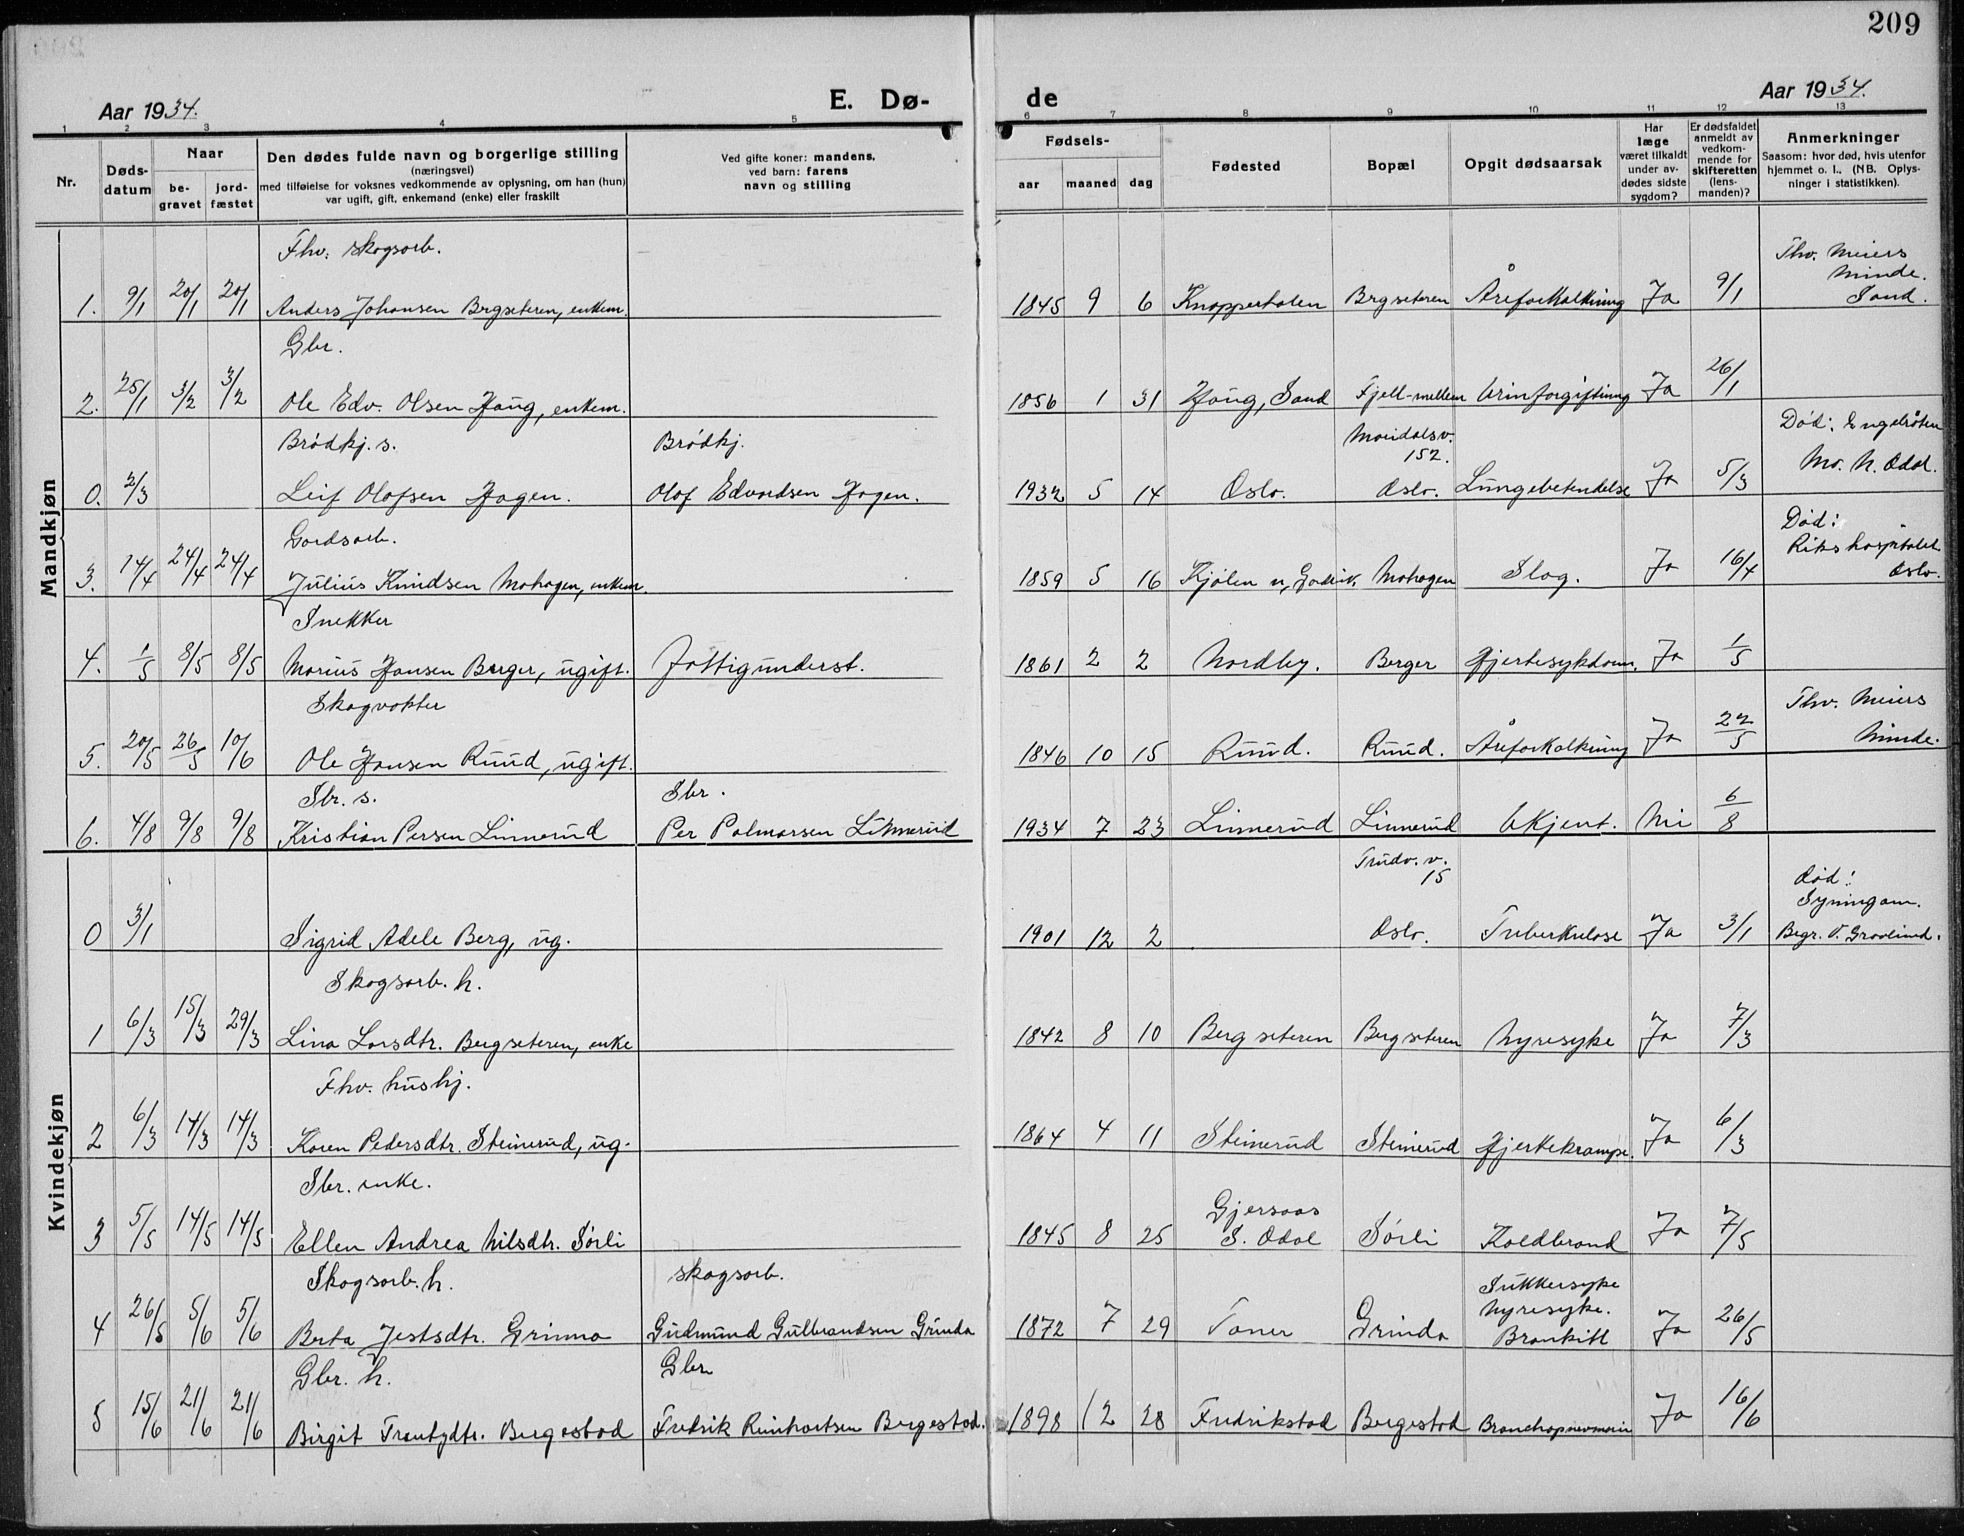 209
Aar 1934.
E. Dø-
de
Aar 1934.
1 2 3 4 5 6 7 8 9 10 11 12 13
Nr.
Døds-
datum
Naar
be-
gravet
jord-
fæstet
Den dødes fulde navn og borgerlige stilling
(næringsvei)
med tilføielse for voksnes vedkommende av oplysning, om han (hun)
var ugift, gift, enkemand (enke) eller fraskilt
Ved gifte koner: mandens,
ved barn: farens
navn og stilling
Fødsels-
aar maaned dag
Fødested
Bopæl
Opgit dødsaarsak
Har
læge
været tilkaldt
under av-
dødes sidste
sygdom?
Er dødsfaldet
anmeldt av
vedkom-
mende for
skifteretten
(lens-
manden)?
Anmerkninger
Saasom: hvor død, hvis utenfor
hjemmet o. l., (NB. Oplys-
ninger i statistikken).
Mandkjøn
Fhv. skogsarb.
1. 9/1 20/1 20/1 Anders Johansen Bergseteren, enkem. 1845 9 6 Knappertolen Bergseteren Åreforkalkning Ja 9/1
Fhv. Meiers
Minde.
Sand.
Gbr.
2. 25/1 3/2 3/2 Ole Edv. Olsen Haug, enkem. 1856 1 31 Haug, Sand Fjell-mellem Urinforgiftning Ja 26/1
Brødkj. s. Brødkj. Maridalsv.
152.
0. 2/3 Leif Olafsen Hagen. Olaf Edvardsen Hagen. 1932 5 14 Oslo. Oslo. Lungebetendelse Ja 5/3
Død: Engelråten
Mo. N. Odal.
Gardsarb.
3. 14/4 24/4 24/4 Julius Knudsen Mohagen, enkem. 1859 5 16 Kjølen Mohagen Slag. Ja 16/4
Død:
Rikshospitalet
Oslo.
Snekker
4. 1/5 8/5 8/5 Marius Hansen Berger, ugift. Fattigunderst. 1861 2 2 Nordby. Berger Hjertesykdom. Ja 1/5
Skogvokter
5. 20/5 26/5 10/6 Ole Hansen Ruud, ugift. 1846 10 15 Ruud. Ruud. Åreforkalkning Ja 22/5
Fhv. Meiers
Minde.
Sbr. s. Sbr.
6. 4/8 9/8 9/8 Kristian Persen Linnerud Per Palmarsen Linnerud 1934 7 23 Linnerud Linnerud Ukjent. Nei 6/8
Kvindekjøn
Trudv. v.
15
0 3/1 Sigrid Adele Berg, ug. 1901 12 2 Oslo. Tuberkulose Ja 3/1
død:
Syningom.
Begr. V. Gravlund.
Skogsarb. h.
1 6/3 15/3 29/3 Lina Larsdtr. Bergseteren, enke 1842 8 10 Bergseteren Bergseteren Nyresyke Ja 7/3
Fhv. hushj.
2 6/3 14/3 14/3 Karen Pedersdtr. Steinerud, ug. 1864 4 11 Steinerud Steinerud Hjertekrampe. Ja 6/3
Sbr. enke.
3 5/5 14/5 14/5 Ellen Andrea Nilsdtr. Sørli 1845 8 25 Gjersaas
S. Odal Sørli Koldbrand Ja 7/5
Skogsarb. h. skogsarb.
4 26/5 5/6 5/6 Berta Jestsdtr. Grinna Gudmund Gulbrandsen Grinda 1872 7 29 Taner Grinda Sukkersyke
Nyresyke.
Bronkitt Ja 26/5
Gbr. h. Gbr
5 15/6 21/6 21/6 Birgit Bergestad Fredrik Reinhartsen Bergestad. 1898 12 28 Fredrikstad Bergestad Bronchopneumoni Ja 16/6